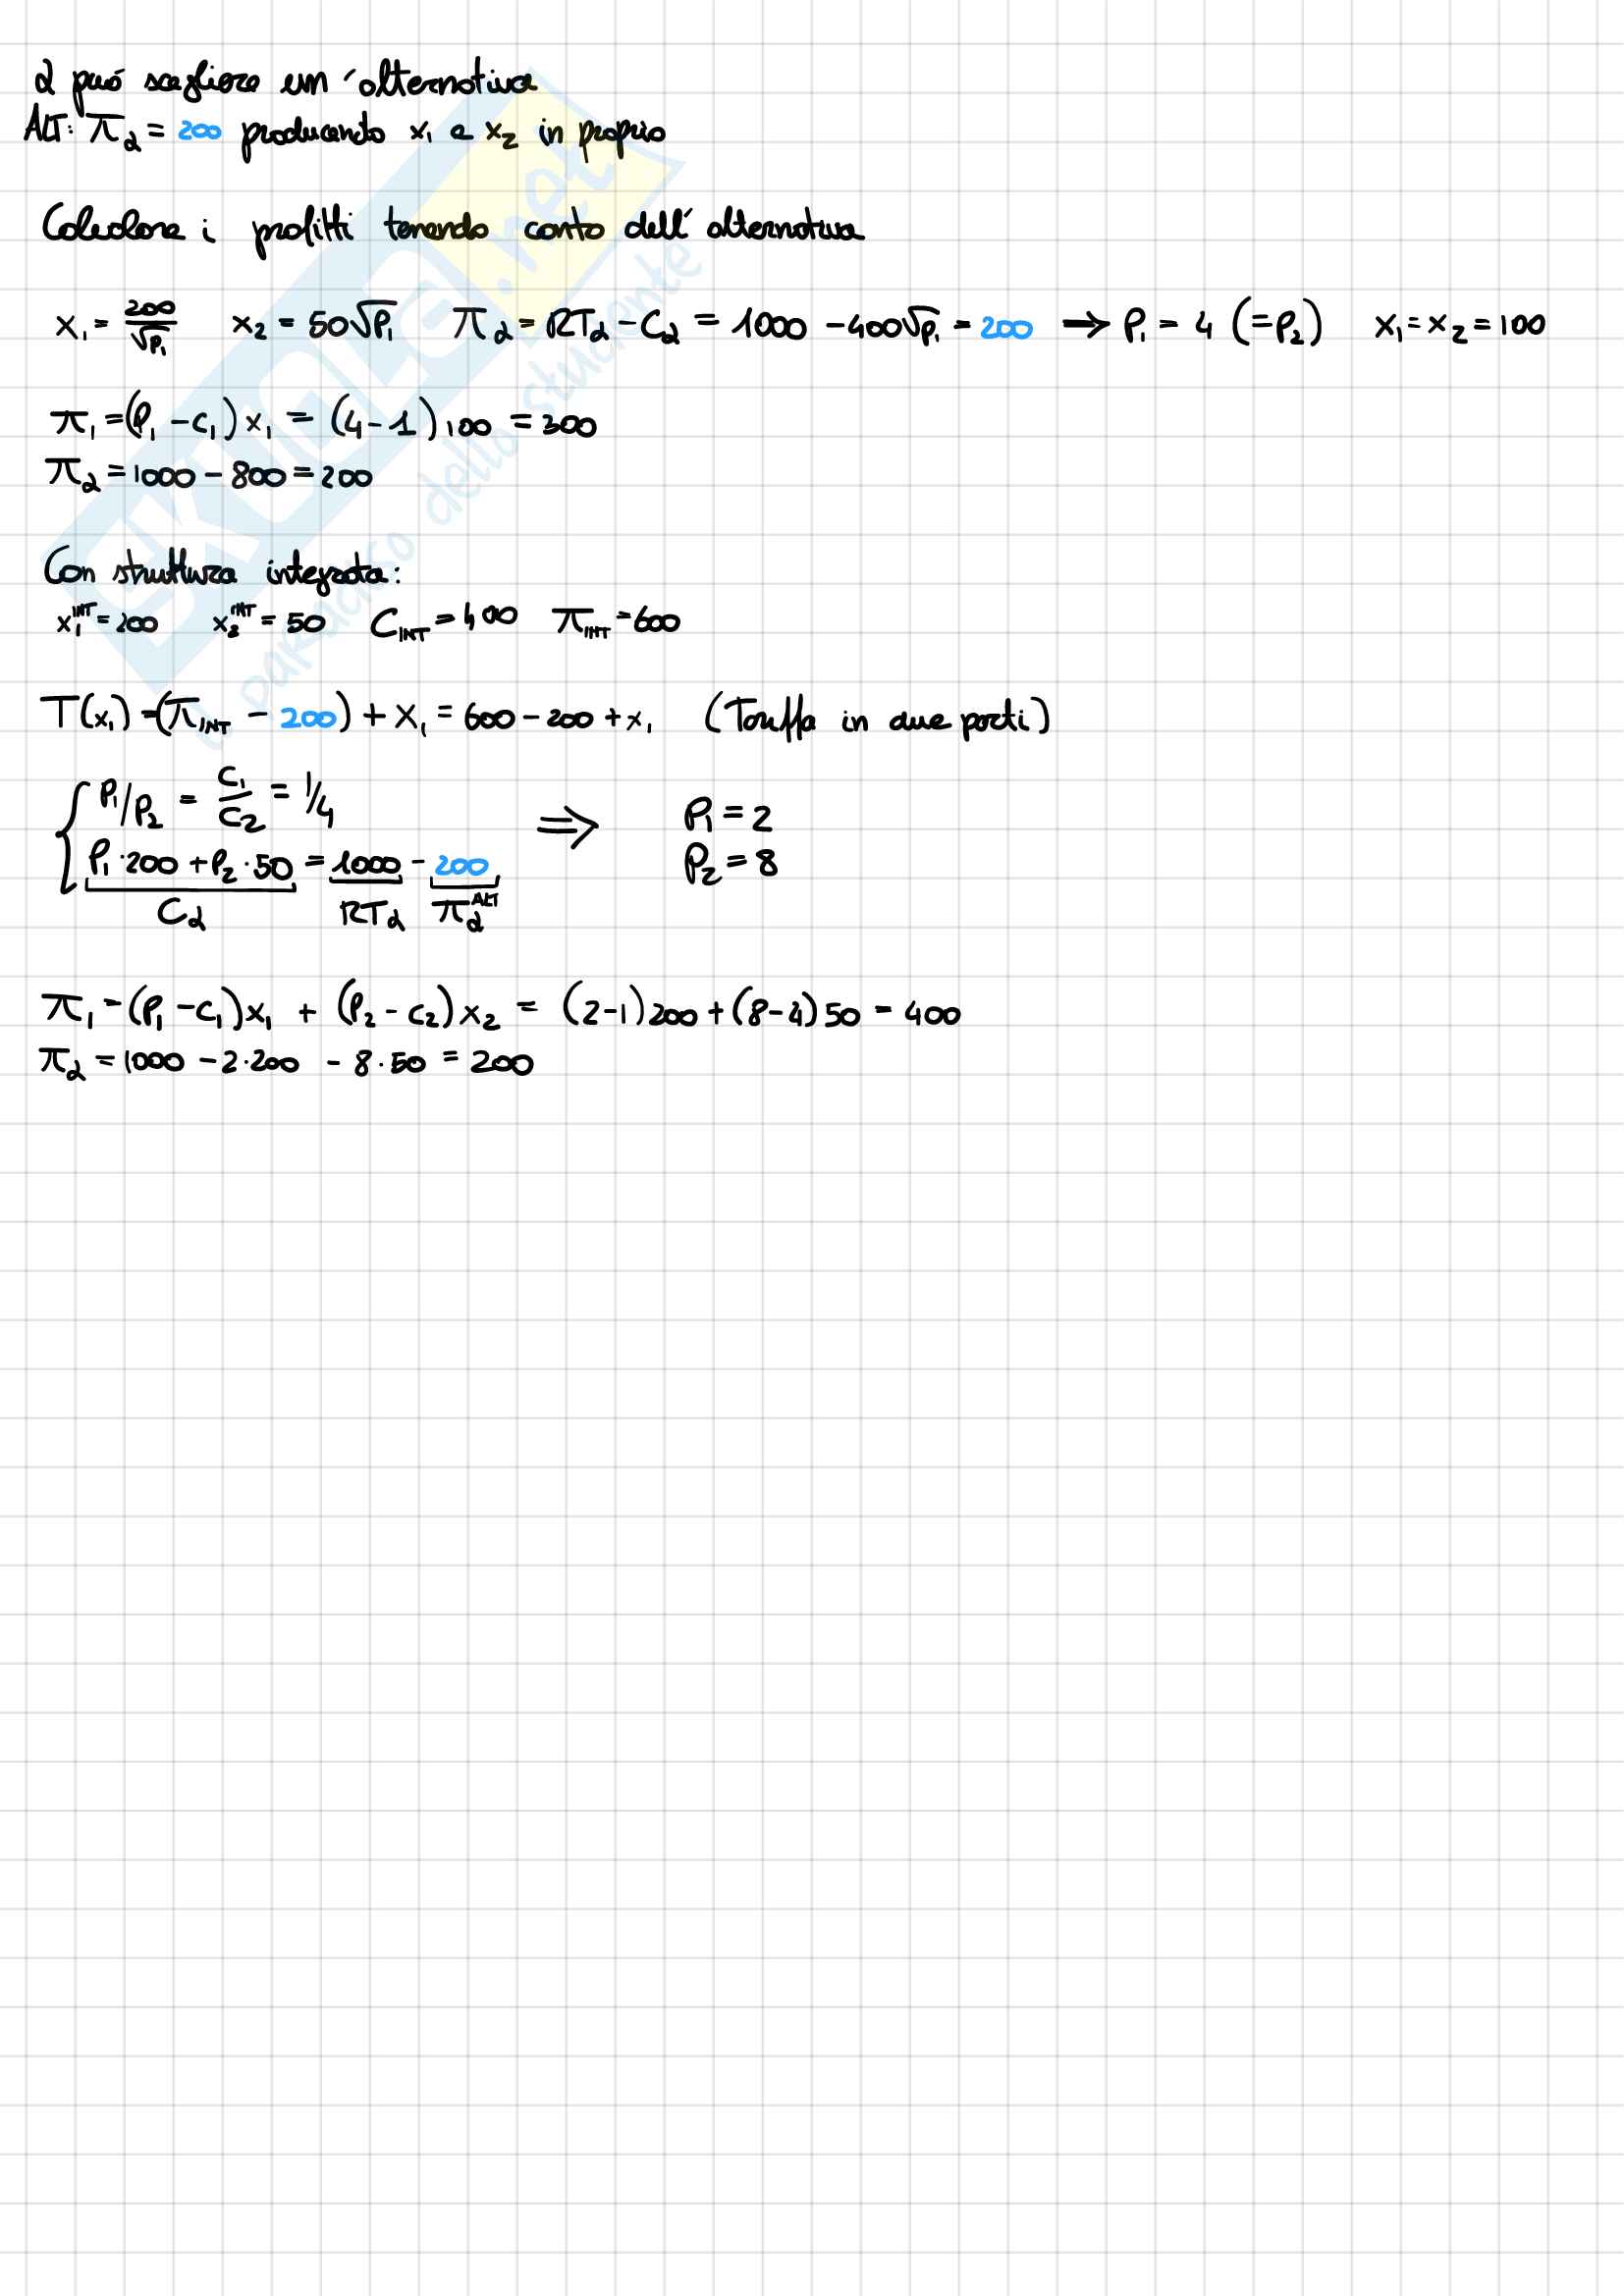 2 può scegliere un'alternativa
ALT: π₂ = 200 producendo x₁ e x₂ in proprio
Calcolare i profitti tenendo conto dell'alternativa
x₁ = 200/√P₁ x₂ = 50√P₁ π₂ = RT₂ - C₂ = 1000 - 400√P₁ = 200 → P₁ = 4 (=P₂) x₁ = x₂ = 100
π₁ = (P₁ - C₁) x₁ = (4-1)100 = 300
π₂ = 1000 - 800 = 200
Con struttura integrata:
x₁ᴵᴺᵀ = 200 x₂ᴵᴺᵀ = 50 C_INT = 400 π_INT = 600
T(x₁) = (π_INT - 200) + x₁ = 600 - 200 + x₁ (Tariffa in due parti)
{ P₁/P₂ = C₁/C₂ = 1/4
P₁·200 + P₂·50 = 1000 - 200 ⇒ P₁ = 2
P₂ = 8
C₂ RT₂ π₂ᴬᴸᵀ
π₁ = (P₁ - C₁)x₁ + (P₂ - C₂)x₂ = (2-1)200 + (8-4)50 = 400
π₂ = 1000 - 2·200 - 8·50 = 200
SKUOLA.net
il paradiso dello studente